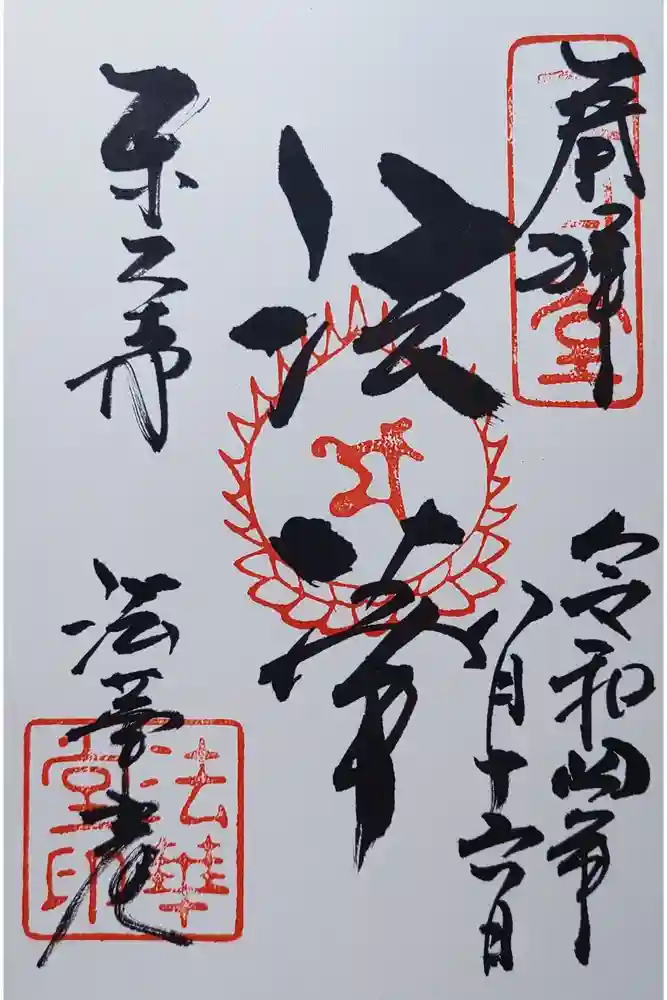 奉拝
三月堂
令和四年
八月十六日
法華
東大寺
法華堂
法華堂印